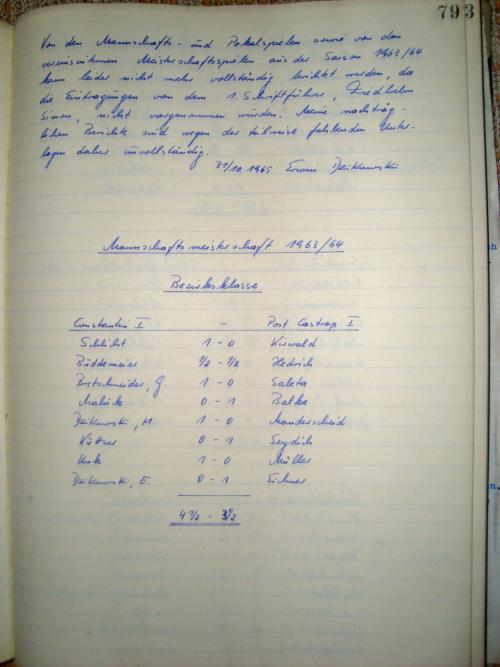 793
Von den Mannschafts- und Pokalspielen sowie von den
vereinsinternen Meisterschaftsspielen aus der Saison 1963/64
kann leider nicht mehr vollständig berichtet werden, da
die Eintragungen von dem 1. Schriftführer, Friedhelm
Simon, nicht vorgenommen wurden. Meine nachträg-
lichen Berichte sind wegen der teilweise fehlenden Unter-
lagen daher unvollständig.
31/10.1965 Erwin Dzikowski
Mannschaftsmeisterschaft 1963/64
Bezirksklasse
Constantin I - Post Castrop I
Schlicht 1 - 0 Kuswald
Büddemeier 1/2 - 1/2 Hedrich
Bretschneider, G. 1 - 0 Saleta
Malück 0 - 1 Balke
Dzikowski, M. 1 - 0 Manderscheid
Küttner 0 - 1 Seydich
Unk 1 - 0 Müller
Dzikowski, E. 0 - 1 Eichner
4 1/2 - 3 1/2